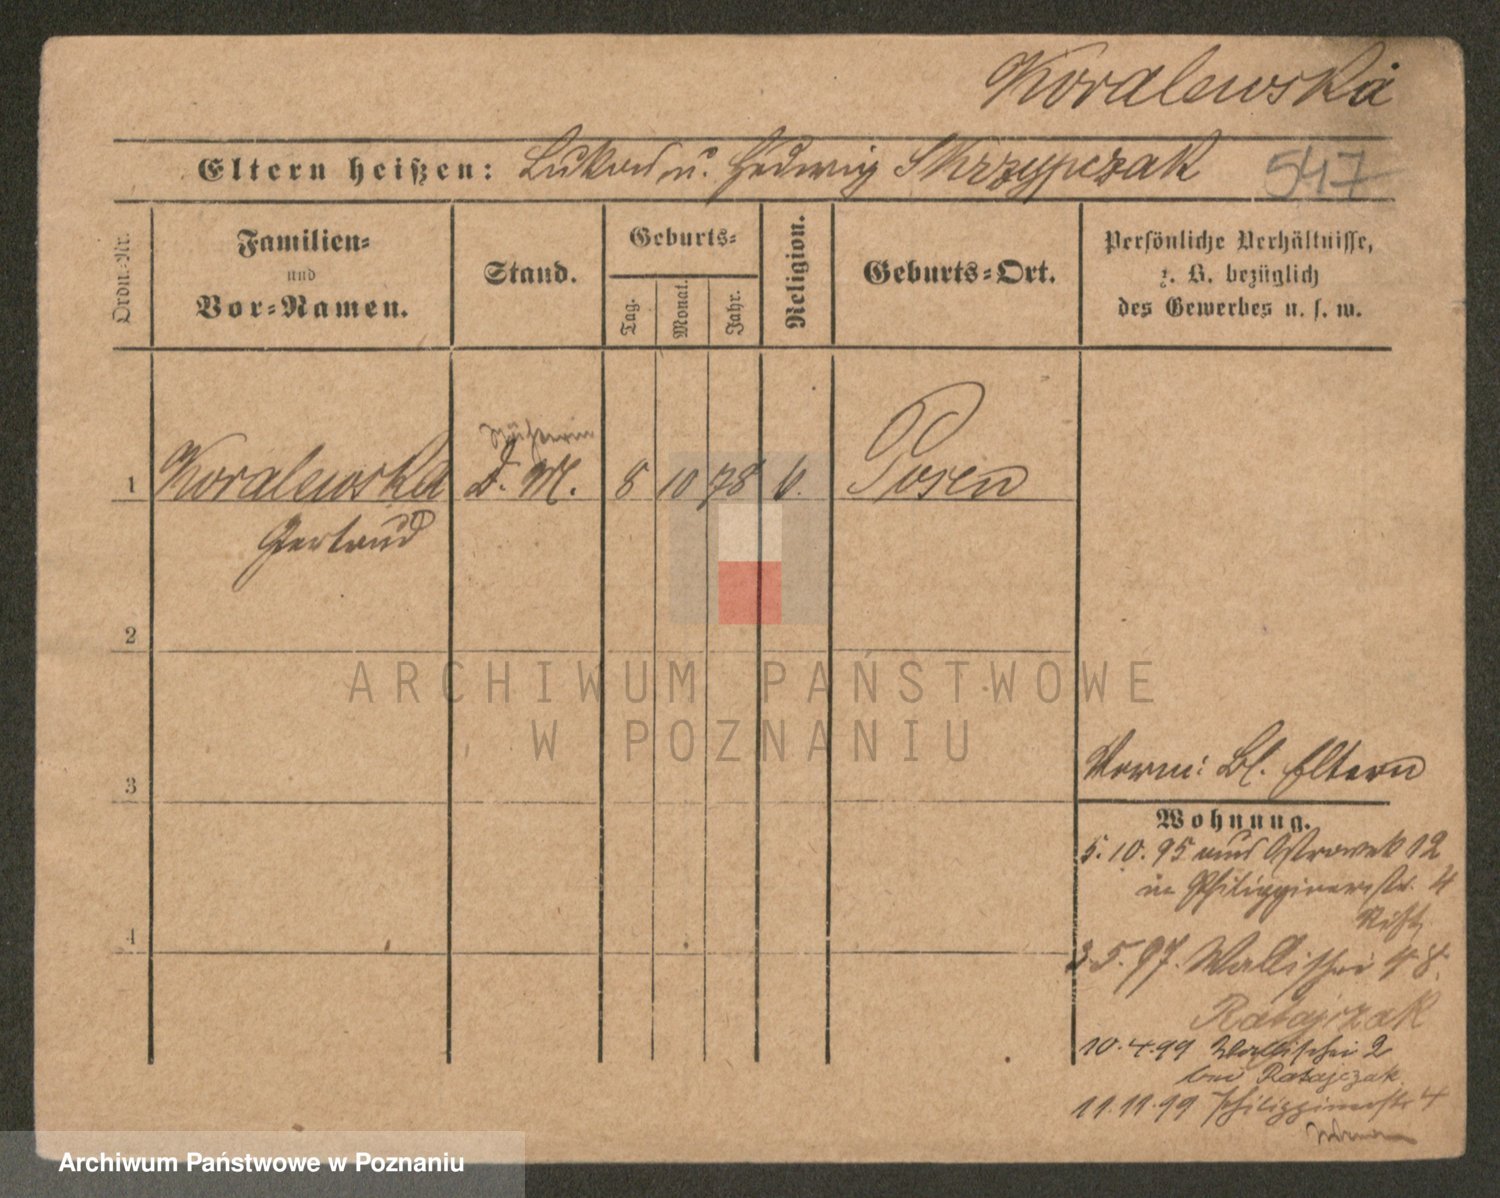 Koralewska
Eltern heißen: Lukas u. Hedwig Skrzypczak 547
Ordn.-Nr.
Familien-
und
Vor-Namen.
Stand.
Geburts-
Tag.
Monat.
Jahr.
Religion.
Geburts-Ort.
Persönliche Verhältnisse,
z. B. bezüglich
des Gewerbes u. s. w.
Näherin
1 Koralewska D. M. 8 10 78 k. Posen
Gertrud
2
3
4
Verm: Bl. Eltern
Wohnung.
5.10.95 aus Ostrowek 12
in Philippinerstr. 4
3.5.97. Wallischei 48.
Ratajczak
10.4.99 Wallischei 2
bei Ratajczak
11.11.99 Philippinerstr 4
ARCHIWUM PAŃSTWOWE
W POZNANIU
Archiwum Państwowe w Poznaniu